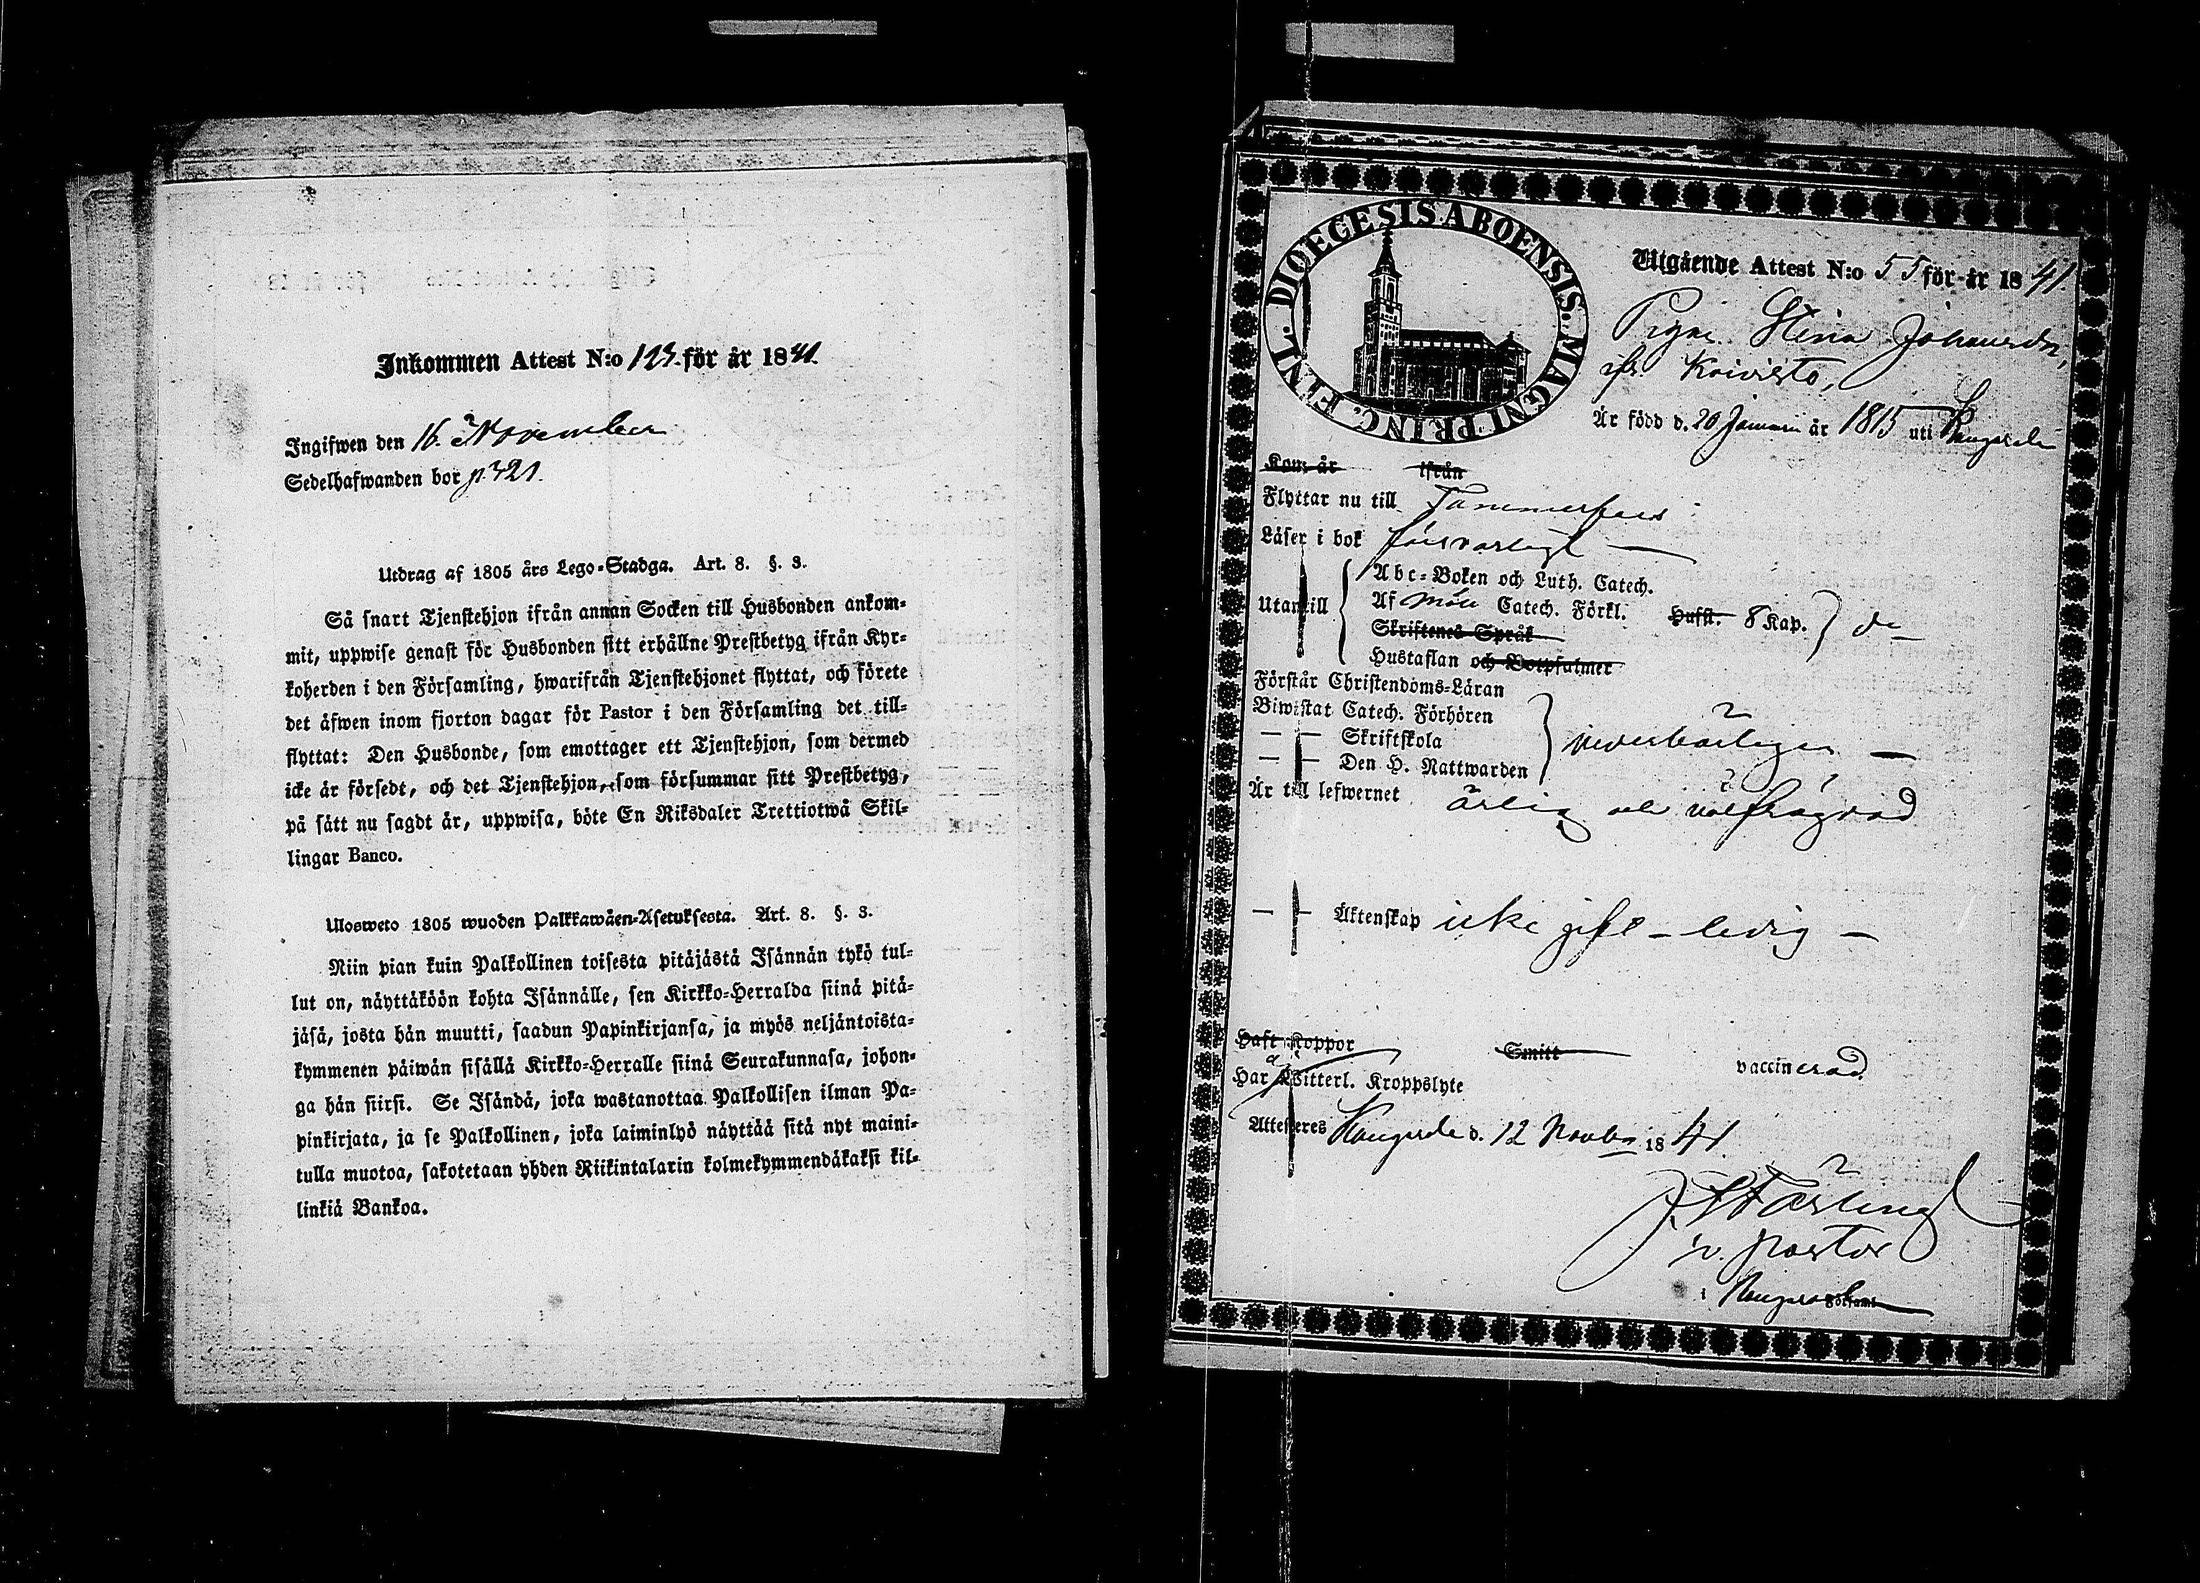 Inkommen Attest N:o 123. för år 1841.
Ingifwen den 16. November
Sedelhafwanden bor p. 321.
Utdrag af 1805 års Lego-Stadga. Art. 8. §. 3.
Så snart Tjenstehjon ifrån annan Socken till Husbonden ankom-
mit, uppwise genast för Husbonden sitt erhållne Prestbetyg ifrån Kyr-
koherden i den Församling, hwarifrån Tjenstehjonet flyttat, och förete
det äfwen inom fjorton dagar för Pastor i den Församling det till-
flyttat: Den Husbonde, som emottager ett Tjenstehjon, som dermed
icke är försedt, och det Tjenstehjon, som försummar sitt Prestbetyg,
på sätt nu sagdt är, uppwisa, böte En Riksdaler Trettiotwå Skil-
lingar Banco.
Ulosweto 1805 wuoden Palkkawäen-Asetuksesta. Art. 8. §. 3.
Niin pian kuin Palkollinen toisesta pitäjästä Isännän tykö tul-
lut on, näyttäköön kohta Isännälle, sen Kirkko-Herralda siinä pitä-
jäsä, josta hän muutti, saadun Papinkirjansa, ja myös neljäntoista-
kymmenen päiwän sisällä Kirkko-Herralle siinä Seurakunnasa, johon-
ga hän siirsi. Se Isändä, joka wastanottaa Palkollisen ilman Pa-
pinkirjata, ja se Palkollinen, joka laiminlyö näyttää sitä nyt maini-
tulla muotoa, sakotetaan yhden Riikintalarin kolmekymmendäkaksi kil-
linkiä Bankoa.
DIOECESIS ABOENSIS. MAGNI PRINC. FINL.
Utgående Attest N:o 55 för år 1841
Pigan Stina Johansdr,
ifr. Koivisto,
Är född d. 20 Januari år 1815 uti Kangasala
Kom år ifrån
Flyttar nu till Tammerfors
Läser i bok försvarligt —
Utantill
Abc-Boken och Luth. Catech.
Af Möll. Catech. Förkl. Husfl. 8 Kap. do
Skriftenes Språk
Hustaflan och Botpsalmer
Förstår Christendoms-Läran
Biwistat Catech. Förhören
— — Skriftskola
— — Den H. Nattwarden
vederbörligen —
Är till lefwernet ärlig och välfrägdad
— — Äktenskap icke gift - ledig —
Haft Koppor Smitt vaccinerad.
Har ej Witterl. Kroppslyte
Attesteres Kangasala d. 12 Novbr 1841.
v. Pastor
i Kangasala Församl.